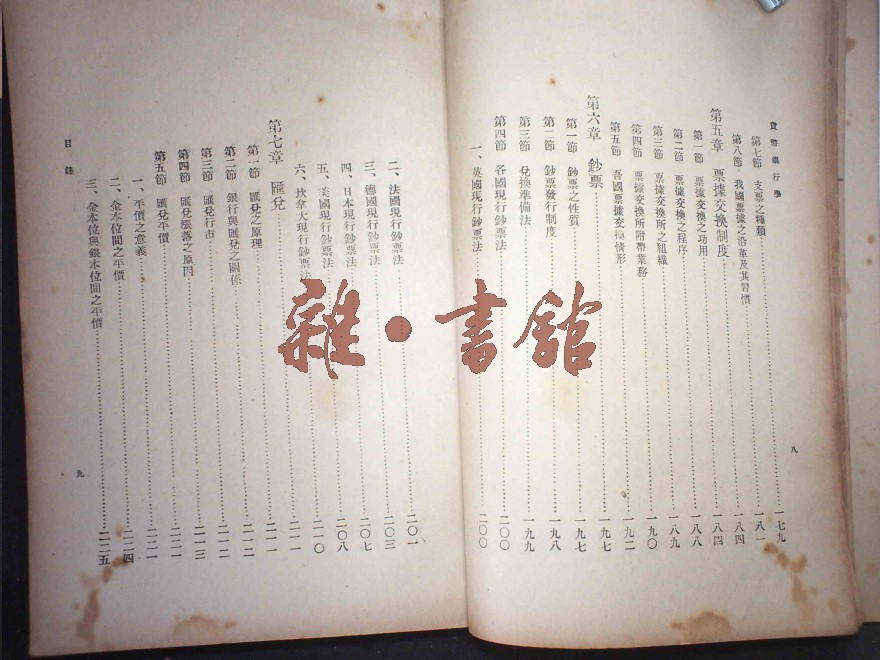 貨幣銀行學
第七節 支票之種類……一七九
第八節 我國票據之沿革及其習慣……一八一
第五章 票據交換制度……一八四
第一節 票據交換之功用……一八四
第二節 票據交換之程序……一八八
第三節 票據交換所之組織……一八九
第四節 票據交換所附帶業務……一九〇
第五節 吾國票據交換情形……一九二
第六章 鈔票……一九七
第一節 鈔票之性質……一九七
第二節 鈔票發行制度……一九八
第三節 兌換準備法……一九九
第四節 各國現行鈔票法……二〇〇
一、英國現行鈔票法……二〇〇
八
二、法國現行鈔票法……二〇一
三、德國現行鈔票法……二〇三
四、日本現行鈔票法……二〇七
五、美國現行鈔票法……二〇八
六、坎拿大現行鈔票法……二一〇
第七章 匯兌……二一一
第一節 匯兌之原理……二一一
第二節 銀行與匯兌之關係……二一二
第三節 匯兌行市……二一二
第四節 匯兌漲落之原因……二一三
第五節 匯兌平價……二二一
一、平價之意義……二二一
二、金本位間之平價……二二四
三、金本位與銀本位間之平價……二二五
目錄
九
雜·書館